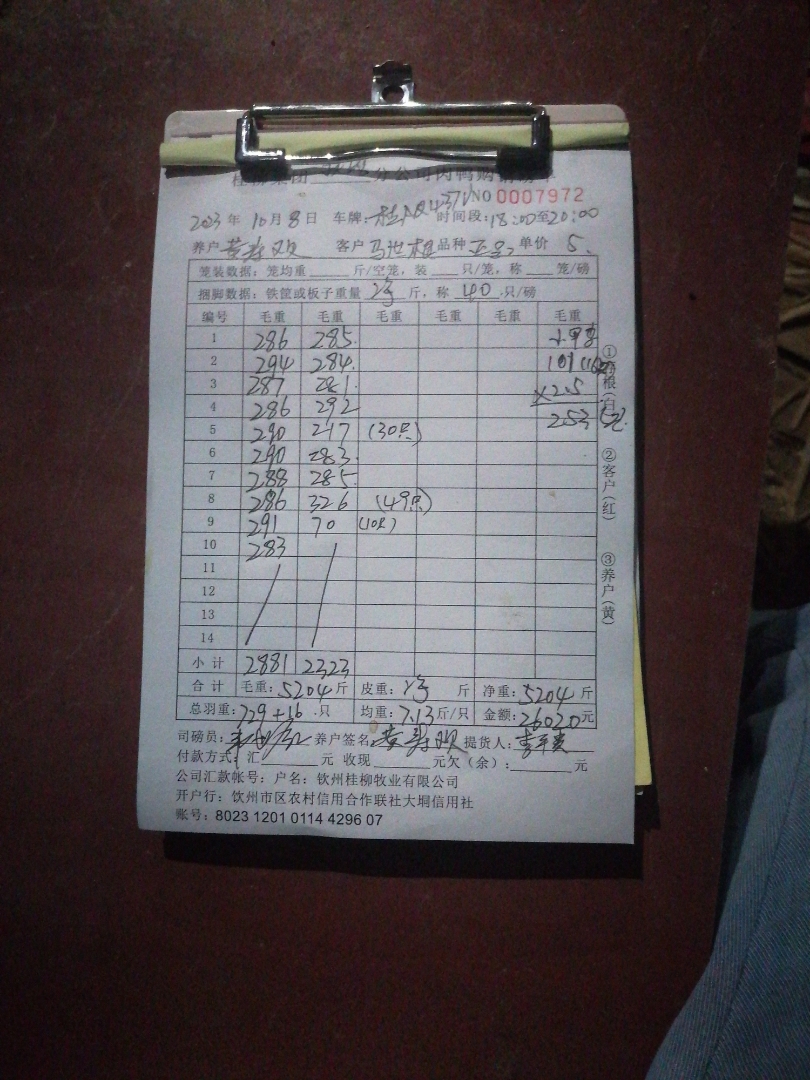 分公司肉鸭购销
NO 0007972
2023年10月8日 车牌: 时间段:18:00至20:00
养户 客户 品种 单价 5.
笼装数据:笼均重 斤/空笼,装 只/笼,称 笼/磅
捆脚数据:铁筐或板子重量 斤,称 40 只/磅
编号 毛重 毛重 毛重 毛重 毛重 毛重
1 286 285
2 294 284 101
3 287 281 ×2.5
4 286 292 253
5 290 217 (30只)
6 290 283
7 288 285
8 286 326 (49只)
9 291 70 (10只)
10 283
11
12
13
14
小计 2881 2323
合计 毛重:5204斤 皮重: 斤 净重:5204斤
总羽重:729+16 只 均重:7.13斤/只 金额:26020元
司磅员: 养户签名: 提货人:
付款方式:汇 元 收现 元欠(余): 元
公司汇款帐号:户名:钦州桂柳牧业有限公司
开户行:钦州市区农村信用合作联社大垌信用社
账号:8023 1201 0114 4296 07
根(白)
②客户(红)
③养户(黄)